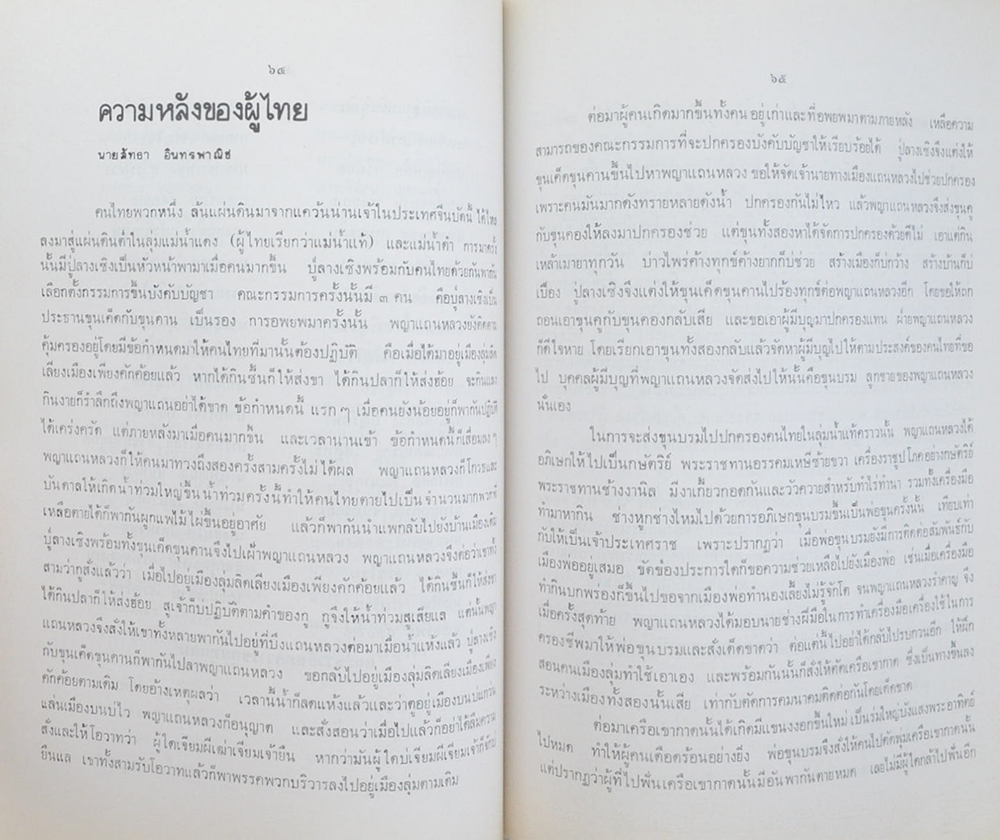 ๖๔
ความหลังของผู้ไทย
นายสัทธา อินทรพาณิช
คนไทยพวกหนึ่ง ล้นแผ่นดินมาจากแควันน่านเจ้าในประเทศจีนบัดนี้ ได้ไหล
ลงมาสู่แผ่นดินต่ำในลุ่มแม่น้ำแดง (ผู้ไทยเรียกว่าแม่น้ำแท้) และแม่น้ำดำ การมาครั้ง
นั้นมีปู่ลางเชิงเป็นหัวหน้าพามาเมื่อคนมากขึ้น ปู่ลางเชิงพร้อมกับคนไทยด้วยกันพากัน
เลือกตั้งกรรมการขึ้นบังคับบัญชา คณะกรรมการครั้งนั้นมี ๓ คน คือปู่ลางเชิงเป็น
ประธานขุนเค็ดกับขุนคาน เป็นรอง การอพยพมาครั้งนั้น พญาแถนหลวงยังติดตาม
คุ้มครองอยู่โดยมีข้อกำหนดมาให้คนไทยที่มานั้นต้องปฏิบัติ คือเมื่อได้มาอยู่เมืองลุ่มลิด
เลียงเมืองเพียงคักค้อยแล้ว หากได้กินชิ้นก็ให้ส่งขา ได้กินปลาก็ให้ส่งฮ้อย จะกินแลง
กินงายก็รำลึกถึงพญาแถนอย่าได้ขาด ข้อกำหนดนี้ แรก ๆ เมื่อคนยังน้อยอยู่ก็พากันปฏิบัติ
ได้เคร่งครัด แต่ภายหลังมาเมื่อคนมากขึ้น และเวลานานเข้า ข้อกำหนดนี้ก็เสื่อมลง ๆ
พญาแถนหลวงก็ให้คนมาทวงถึงสองครั้งสามครั้งไม่ได้ผล พญาแถนหลวงก็โกรธและ
บันดาลให้เกิดน้ำท่วมใหญ่ขึ้น น้ำท่วมครั้งนี้ทำให้คนไทยตายไปเป็นจำนวนมากพวกที่
เหลือตายได้ก็พากันผูกแพไม้ไผ่ขึ้นอยู่อาศัย แล้วก็พากันนำแพกลับไปยังบ้านเมืองเดิม
ปู่ลางเชิงพร้อมทั้งขุนเค็ดขุนคานจึงไปเฝ้าพญาแถนหลวง พญาแถนหลวงจึงต่อว่าเขาทั้ง
สามว่ากูสั่งแล้วว่า เมื่อไปอยู่เมืองลุ่มลิดเลียงเมืองเพียงคักค้อยแล้ว ได้กินชิ้นก็ให้ส่งขา
ได้กินปลาก็ให้ส่งฮ้อย สูเจ้าก็บ่ปฏิบัติตามคำของกู กูจึงให้น้ำท่วมสูเสียแล แต่นั้นพญา
แถนหลวงจึงสั่งให้เขาทั้งหลายพากันไปอยู่ที่บึงแถนหลวงต่อมาเมื่อน้ำแห้งแล้ว ปู่ลางเชิง
กับขุนเค็ดขุนคานก็พากันไปลาพญาแถนหลวง ขอกลับไปอยู่เมืองลุ่มลิดเลียงเมืองเพียง
คักค้อยตามเดิม โดยอ้างเหตุผลว่า เวลานี้น้ำก็ลดแห้งแล้วและว่าตูอยู่เมืองบนบ่แกว่น
แล่นเมืองบนบ่ไว พญาแถนหลวงก็อนุญาต และสั่งสอนว่าเมื่อไปแล้วก็อย่าได้ลืมความ
สั่งและให้โอวาทว่า ผู้ใดเจียมผีเฒ่าเจียมเจ้ายืน หากว่ามันผู้ใดบ่เจียมผีเจียมเจ้าก็จักบ่
ยืนแล เขาทั้งสามรับโอวาทแล้วก็พาพรรคพวกบริวารลงไปอยู่เมืองลุ่มตามเดิม
๖๕
ต่อมาผู้คนเกิดมากขึ้นทั้งคนอยู่เก่าและที่อพยพมาตามภายหลัง เหลือความ
สามารถของคณะกรรมการที่จะปกครองบังคับบัญชาให้เรียบร้อยได้ ปู่ลางเชิงจึงแต่งให้
ขุนเค็ดขุนคานขึ้นไปหาพญาแถนหลวง ขอให้จัดเจ้านายทางเมืองแถนหลวงไปช่วยปกครอง
เพราะคนมันมากดังทรายหลายดังน้ำ ปกครองกันไม่ไหว แล้วพญาแถนหลวงจึงส่งขุนคู
กับขุนคองให้ลงมาปกครองช่วย แต่ขุนทั้งสองหาได้จัดการปกครองด้วยดีไม่ เอาแต่กิน
เหล้าเมายาทุกวัน บ่าวไพร่ค้างทุกข์ค้างยากก็บ่ช่วย สร้างเมืองก็บ่กว้าง สร้างบ้านก็บ่
เบือง ปู่ลางเชิงจึงแต่งให้ขุนเค็ดขุนคานไปร้องทุกข์ต่อพญาแถนหลวงอีก โดยขอให้ถก
ถอนเอาขุนคูกับขุนคองกลับเสีย และขอเอาผู้มีบุญมาปกครองแทน ฝ่ายพญาแถนหลวง
ก็ดีใจหาย โดยเรียกเอาขุนทั้งสองกลับแล้วจัดหาผู้มีบุญไปให้ตามประสงค์ของคนไทยที่ขอ
ไป บุคคลผู้มีบุญที่พญาแถนหลวงจัดส่งไปให้นั้นคือขุนบรม ลูกชายของพญาแถนหลวง
นั่นเอง
ในการจะส่งขุนบรมไปปกครองคนไทยในลุ่มน้ำแท้คราวนั้น พญาแถนหลวงได้
อภิเษกให้ไปเป็นกษัตริย์ พระราชทานอรรคมเหษีซ้ายขวา เครื่องราชูปโภคอย่างกษัตริย์
พระราชทานช้างงานิล มีงาเกี้ยวกอดกันและวัวควายสำหรับทำไร่ทำนา รวมทั้งเครื่องมือ
ทำมาหากิน ช่างหูกช่างไหมไปด้วยการอภิเษกขุนบรมขึ้นเป็นพ่อขุนครั้งนั้น เทียบเท่า
กับให้เป็นเจ้าประเทศราช เพราะปรากฏว่า เมื่อพ่อขุนบรมยังมีการติดต่อสัมพันธ์กับ
เมืองพ่ออยู่เสมอ ขัดข้องประการใดก็ขอความช่วยเหลือไปยังเมืองพ่อ เช่นเมื่อเครื่องมือ
ทำกินบกพร่องก็ขึ้นไปขอจากเมืองพ่อทำนองเลี้ยงไม่รู้จักโต จนพญาแถนหลวงรำคาญ จึง
เมื่อครั้งสุดท้าย พญาแถนหลวงได้มอบนายช่างฝีมือในการทำเครื่องมือเครื่องใช้ในการ
ครองชีพมาให้พ่อขุนบรมและสั่งเด็ดขาดว่า ต่อแต่นี้ไปอย่าได้กลับไปรบกวนอีก ให้ฝึก
สอนคนเมืองลุ่มทำใช้เอาเอง และพร้อมกันนั้นก็สั่งให้ตัดเครือเขากาด ซึ่งเป็นทางขึ้นลง
ระหว่างเมืองทั้งสองนั้นเสีย เท่ากับตัดการคมนาคมติดต่อกันโดยเด็ดขาด
ต่อมาเครือเขากาดนั้นได้เกิดมีแขนงงอกขึ้นใหม่ เป็นร่มใหญ่บังแสงพระอาทิตย์
ไปหมด ทำให้ผู้คนเดือดร้อนอย่างยิ่ง พ่อขุนบรมจึงสั่งให้คนไปตัดพุ่มเครือเขากาดนั้น
แต่ปรากฏว่าผู้ที่ไปฟันเครือเขากาดนั้นมีอันพากันตายหมด เลยไม่มีผู้ใดกล้าไปฟันอีก